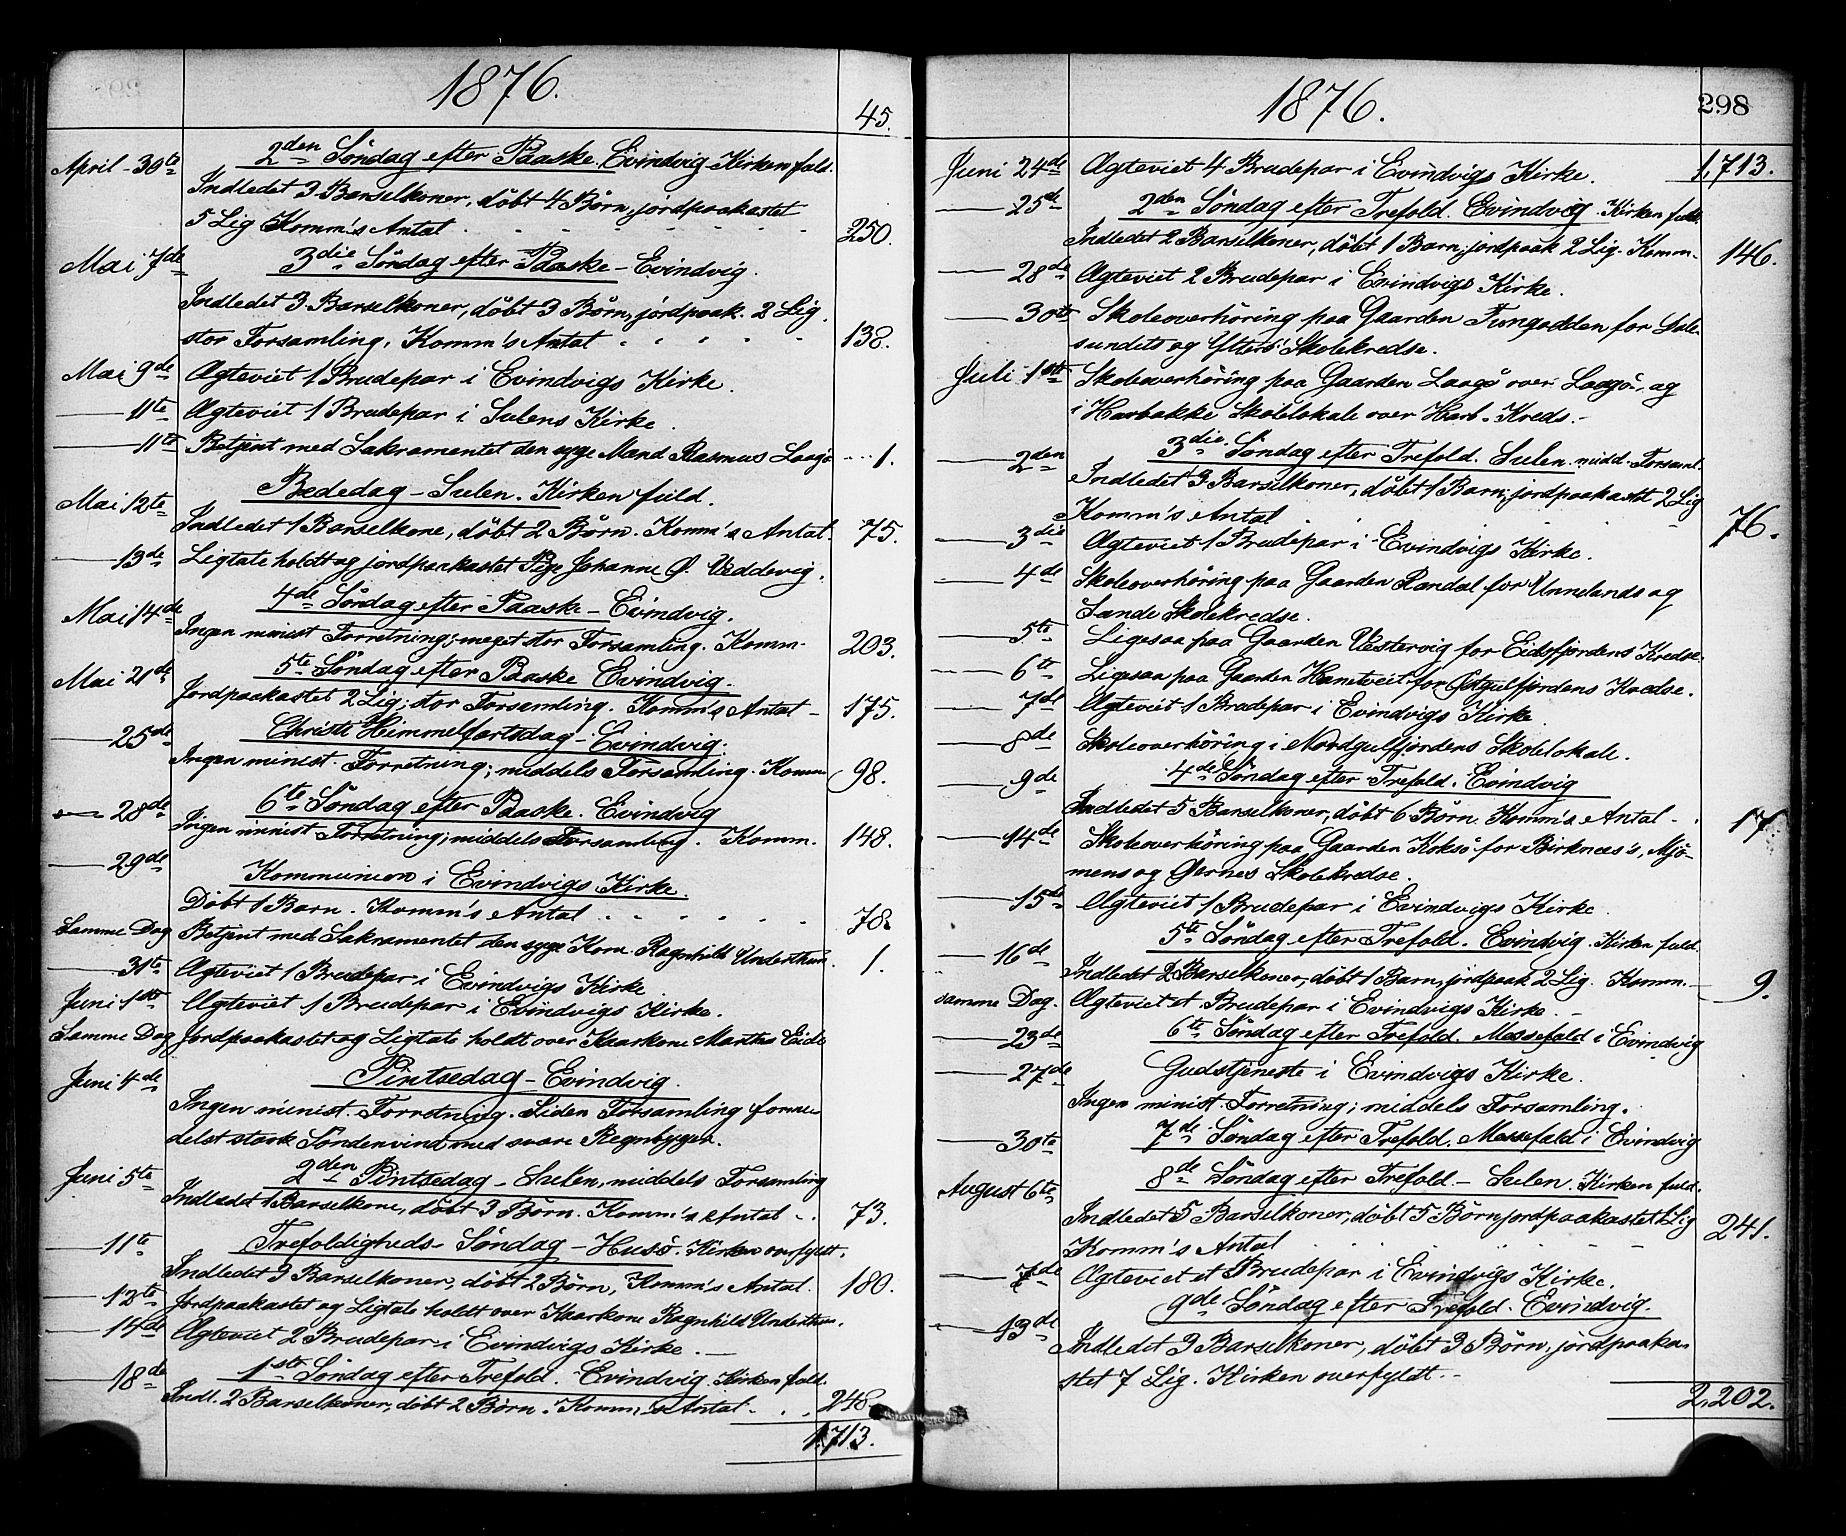 1876.
45.
April 30te 2den Søndag efter Paaske. Evindvig Kirken fuld.
Indledet 3 Barselkoner, døbt 4 Børn, jordpaakastet
5 Lig Komm's Antal . . . . . . 250.
Mai 7de 3die Søndag efter Paaske - Evindvig.
Indledet 3 Barselkoner, døbt 3 Børn, jordpaak. 2 Lig.
stor Forsamling, Komm's Antal . . . . . 138.
Mai 9de Ægteviet 1 Brudepar i Evindvigs Kirke.
— 11te Ægteviet 1 Brudepar i Sulens Kirke.
— 11te Betjent med Sakramentet den syge Mand Rasmus Laagø ... 1.
Bededag - Sulen. Kirken fuld.
Mai 12te
Indledet 1 Barselkone, døbt 2 Børn. Komm's Antal. 75.
— 13de Ligtale holdt og jordpaakastet Pige Johanne Ø. Veddevig.
Mai 14de 4de Søndag efter Paaske - Evindvig.
Ingen minist Forretning; meget stor Forsamling. Komm. 203.
Mai 21de 5te Søndag efter Paaske Evindvig.
Jordpaakastet 2 Lig; stor Forsamling. Komm's Antal - 175.
— 25de Christi Himmelfartsdag - Evindvig.
Ingen minist. Forretning; middels Forsamling. Komm 98.
— 28de 6te Søndag efter Paaske. Evindvig
Ingen minist Forretning; middels Forsamling. Komm. 148.
— 29de
Kommunion i Evindvigs Kirke.
Døbt 1 Barn. Komm's Antal . . . . . . 78.
Samme Dag Betjent med Sakramentet den syge Kone Ragnhild Underthun. 1.
— 31te Ægteviet 1 Brudepar i Evindvigs Kirke
Juni 1ste Ægteviet 1 Brudepar i Evindvigs Kirke.
Samme Dag Jordpaakastet og Ligtale holdt over Kaarkone Marthe Eide
Juni 4de Pintsedag - Evindvig.
Ingen minist. Forretning. Liden Forsamling forme-
delst stærk Søndenvind med svare Regnbyger.
Juni 5te 2den Pintsedag - Sulen, middels Forsamling
Indledet 1 Barselkone, døbt 3 Børn. Komm's Antal - . 73.
— 11te Trefoldigheds-Søndag - Husø. Kirken overfyldt.
Indledet 3 Barselkoner, døbt 2 Børn, Komm's Antal. 180.
— 12te Jordpaakastet og Ligtale holdt over Kaarkone Ragnhild Underthun.
— 14de Ægteviet 2 Brudepar i Evindvigs Kirke. —
— 18de 1ste Søndag efter Trefold. Evindvig. Kirken fuld.
Indl. 2 Barselkoner, døbt 2 Børn. Komm's Antal. . . 248.
1,713.
1876.
298
Juni 24de Ægteviet 4 Brudepar i Evindvigs Kirke. 1,713.
— 25de 2den Søndag efter Trefold. Evindvig. Kirken fuld.
Indledet 2 Barselkoner, døbt 1 Barn, jordpaak 2 Lig. Komm. 146.
— 28de Ægteviet 2 Brudepar i Evindvigs Kirke.
— 30te Skoleoverhøring paa Gaarden Tungodden for Sule-
sundets og Ytterø Skolekredse.
Juli 1ste Skoleoverhøring paa Gaarden Laagø over Laagø- og
i Harbakke Skolelokale over Harb. Kreds. -
— 2den 3die Søndag efter Trefold. Sulen. midd. Forsaml.
Indledet 3 Barselkoner, døbt 1 Barn; jordpaakastet 2 Lig
Komm's Antal . . . . . 76.
— 3die Ægteviet 1 Brudepar i Evindvigs Kirke.
— 4de Skoleoverhøring paa Gaarden Randal for Unnelands og
Sande Skolekredse.
— 5te Ligesaa paa Gaarden Vestervig for Eidsfjordens Kredse.
— 6te Ligesaa paa Gaarden Hantveit for Østgulfjordens Kredse.
— 7de Ægteviet 1 Brudepar i Evindvigs Kirke.
— 8de Skoleoverhøring i Nordgulfjordens Skolelokale.
— 9de 4de Søndag efter Trefold. Evindvig
Indledet 5 Barselkoner, døbt 6 Børn. Komm's Antal - . 17.
— 14de Skoleoverhøring paa Gaarden Koksø for Birknæs's, Mjø-
mens og Gernes Skolekredse.
— 15de Ægteviet 1 Brudepar i Evindvigs Kirke.
— 16de 5te Søndag efter Trefold. Evindvig. Kirken fuld.
Indledet 2 Barselkoner, døbt 1 Barn, jordpaak 2 Lig. Komm. — 9.
samme Dag. Ægteviet et Brudepar i Evindvigs Kirke. —
— 23de 6te Søndag efter Trefold. Messefald i Evindvig
— 27de Gudstjeneste i Evindvigs Kirke.
Ingen minist. Forretning; middels Forsamling.
— 30te 7de Søndag efter Trefold. Messefald i Evindvig
August 6te 8de Søndag efter Trefold. - Sulen. Kirken fuld.
Indledet 5 Barselkoner, døbt 5 Børn, jordpaakastet 1 Lig
Komm's Antal . . . . . 241.
— 7de Ægteviet et Brudepar i Evindvigs Kirke.
— 13de 9de Søndag efter Trefold. Evindvig.
Indledet 3 Barselkoner, døbt 3 Børn, jordpaaka-
stet 7 Lig. Kirken overfyldt. -
2,202.